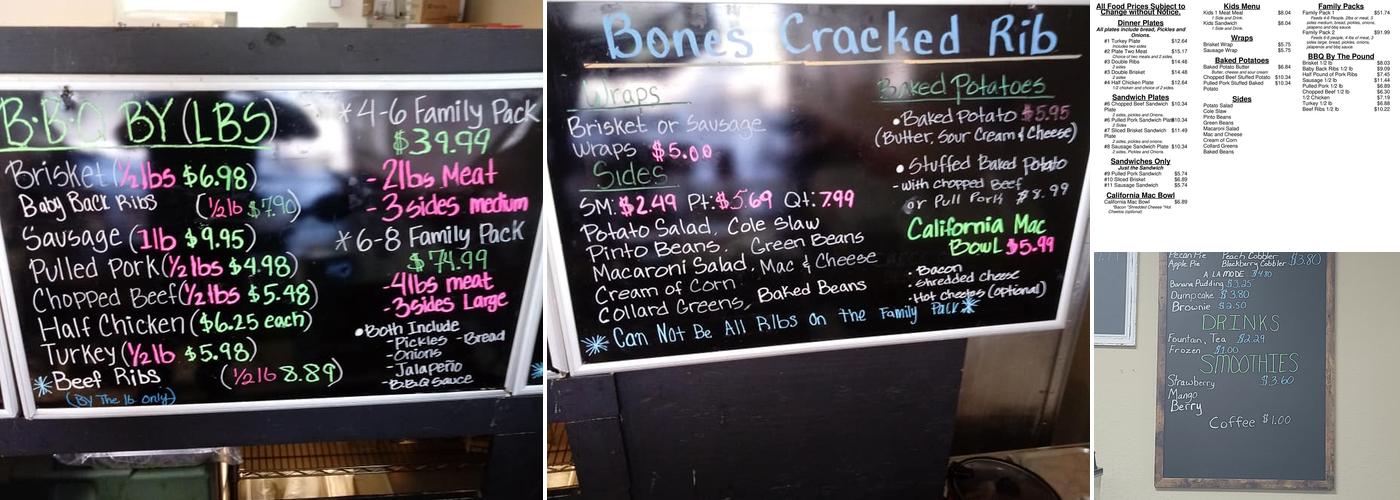 B.B.Q BY (LBS)
Brisket (1/2lbs $6.98)
Baby Back Ribs (1/2lb $7.90)
Sausage (1lb $9.95)
Pulled Pork (1/2lbs $4.98)
Chopped Beef (1/2lbs $5.48)
Half Chicken ($6.25 each)
Turkey (1/2lb $5.98)
*Beef Ribs (1/2lb 8.89)
(By The lb. only)
*4-6 Family Pack
$39.99
-2lbs Meat
-3sides medium
*6-8 Family Pack
$74.99
-4lbs meat
-3sides Large
•Both Include
-Pickles -Bread
-Onions
-Jalapeño
-B.B.Q Sauce
Bones Cracked Rib
Wraps
Brisket or Sausage
Wraps $5.00
Sides
SM: $2.49 Pt: $5.69 Qt: 7.99
Potato Salad, Cole Slaw
Pinto Beans, Green Beans
Macaroni Salad, Mac & Cheese
Cream of Corn
Collard Greens, Baked Beans
Baked Potatoes
•Baked Potato $5.95
(Butter, Sour Cream & Cheese)
•Stuffed Baked Potato
-with Chopped Beef
or Pull Pork $8.99
California Mac
Bowl $5.99
•Bacon
•Shredded cheese
•Hot cheetos (optional)
*Can Not Be All Ribs On the Family Pack*
All Food Prices Subject to
Change without Notice.
Dinner Plates
All plates include bread, Pickles and
Onions.
#1 Turkey Plate $12.64
Includes two sides
#2 Plate Two Meat $15.17
Choice of two meats and 2 sides
#3 Double Ribs $14.48
2 sides
#3 Double Brisket $14.48
2 sides
#4 Half Chicken Plate $12.64
1/2 chicken and choice of 2 sides
Sandwich Plates
#6 Chopped Beef Sandwich $10.34
Plate
2 sides, pickles and onions.
#6 Pulled Pork Sandwich Plate $10.34
2 Sides
#7 Sliced Brisket Sandwich $11.49
Plate
2 sides, pickles and onions.
#8 Sausage Sandwich Plate $10.34
2 sides, Pickles and Onions.
Sandwiches Only
Just the Sandwich
#9 Pulled Pork Sandwich $5.74
#10 Sliced Brisket $6.89
#11 Sausage Sandwich $5.74
California Mac Bowl
California Mac Bowl $6.89
*Bacon *Shredded Cheese *Hot
Cheetos (optional)
Kids Menu
Kids 1 Meat Meal $8.04
1 Side and Drink.
Kids Sandwich $8.04
1 Side and Drink.
Wraps
Brisket Wrap $5.75
Sausage Wrap $5.75
Baked Potatoes
Baked Potato Butter $6.84
Butter, cheese and sour cream
Chopped Beef Stuffed Potato $10.34
Pulled Pork Stuffed Baked $10.34
Potato
Sides
Potato Salad
Cole Slaw
Pinto Beans
Green Beans
Macaroni Salad
Mac and Cheese
Cream of Corn
Collard Greens
Baked Beans
Family Packs
Family Pack 1 $51.74
Feeds 4-6 People, 2lbs or meat, 3
sides medium, bread, pickles, onions,
jalapeno and bbq sauce.
Family Pack 2 $91.99
Feeds 6-8 people, 4 lbs of meat, 3
sides large, bread, pickles, onions,
jalapenos and bbq sauce.
BBQ By The Pound
Brisket 1/2 lb $8.03
Baby Back Ribs 1/2 lb $9.09
Half Pound of Pork Ribs $7.45
Sausage 1/2 lb $11.44
Pulled Pork 1/2 lb $6.89
Chopped Beef 1/2 lb $6.30
1/2 Chicken $7.19
Turkey 1/2 lb $6.88
Beef Ribs 1/2 lb $10.22
Pecan Pie Peach Cobbler
Apple Pie Blackberry Cobbler $3.80
A LA MODE $4.80
Banana Pudding $3.25
Dumpcake $3.80
Brownie $2.50
DRINKS
Fountain, Tea $2.29
Frozen $1.00
SMOOTHIES
Strawberry $3.60
Mango
Berry
Coffee $1.00